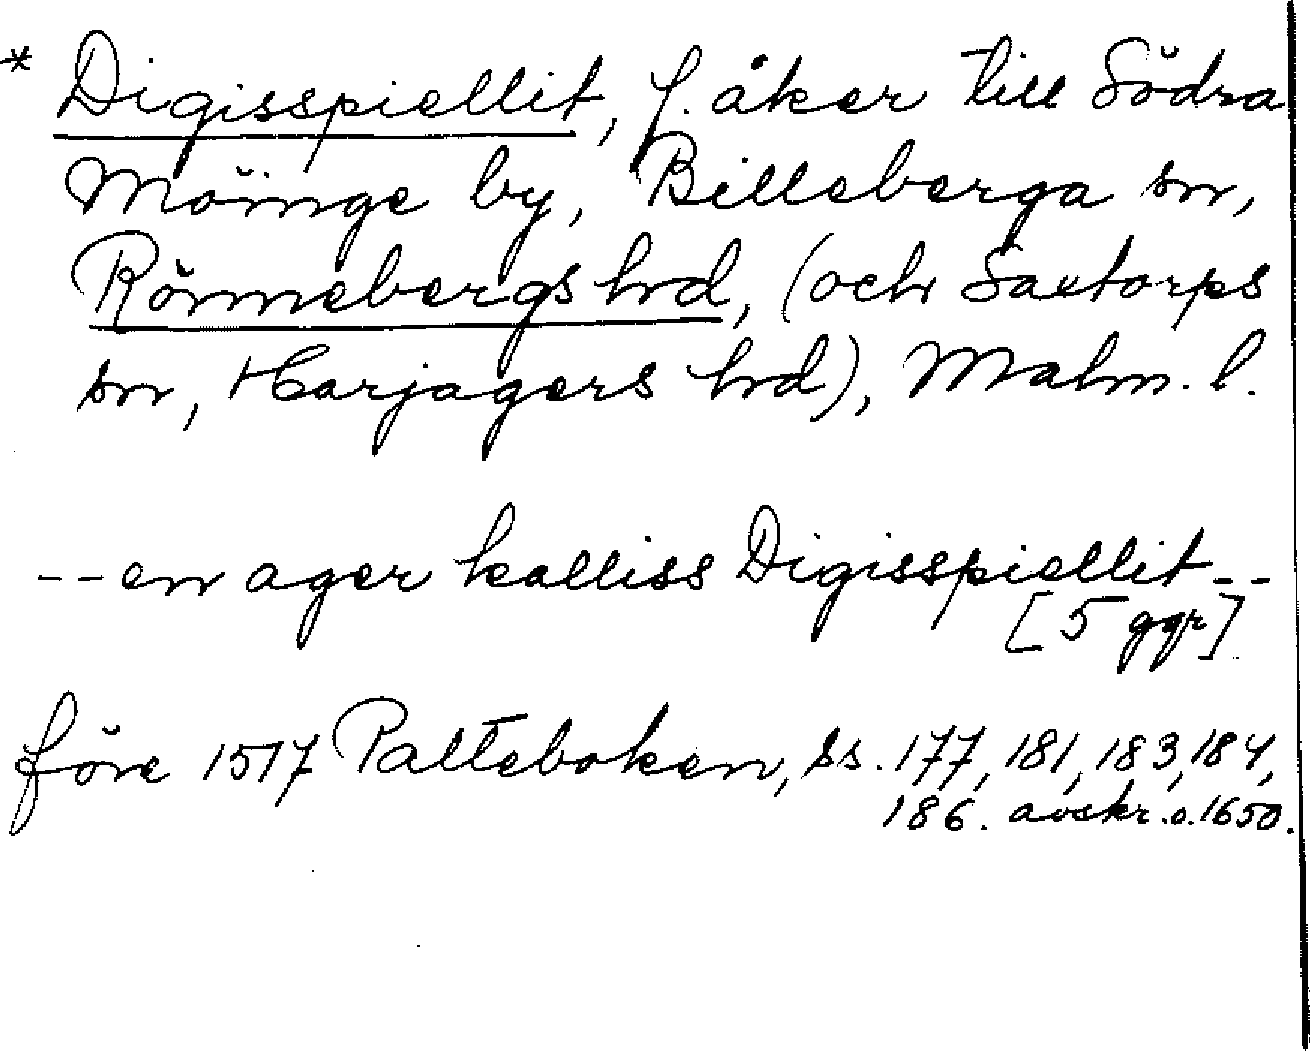 * Digisspiellit, f. åker till Södra
Möinge by, Billeberga sn,
Rönnebergs hrd, (och Saxtorps
sn, Harjagers hrd), Malm. l.
-- en ager kalliss Digisspiellit --
[5 ggr]
före 1517 Palteboken, ss. 177, 181, 183, 184,
186. avskr. o. 1650.